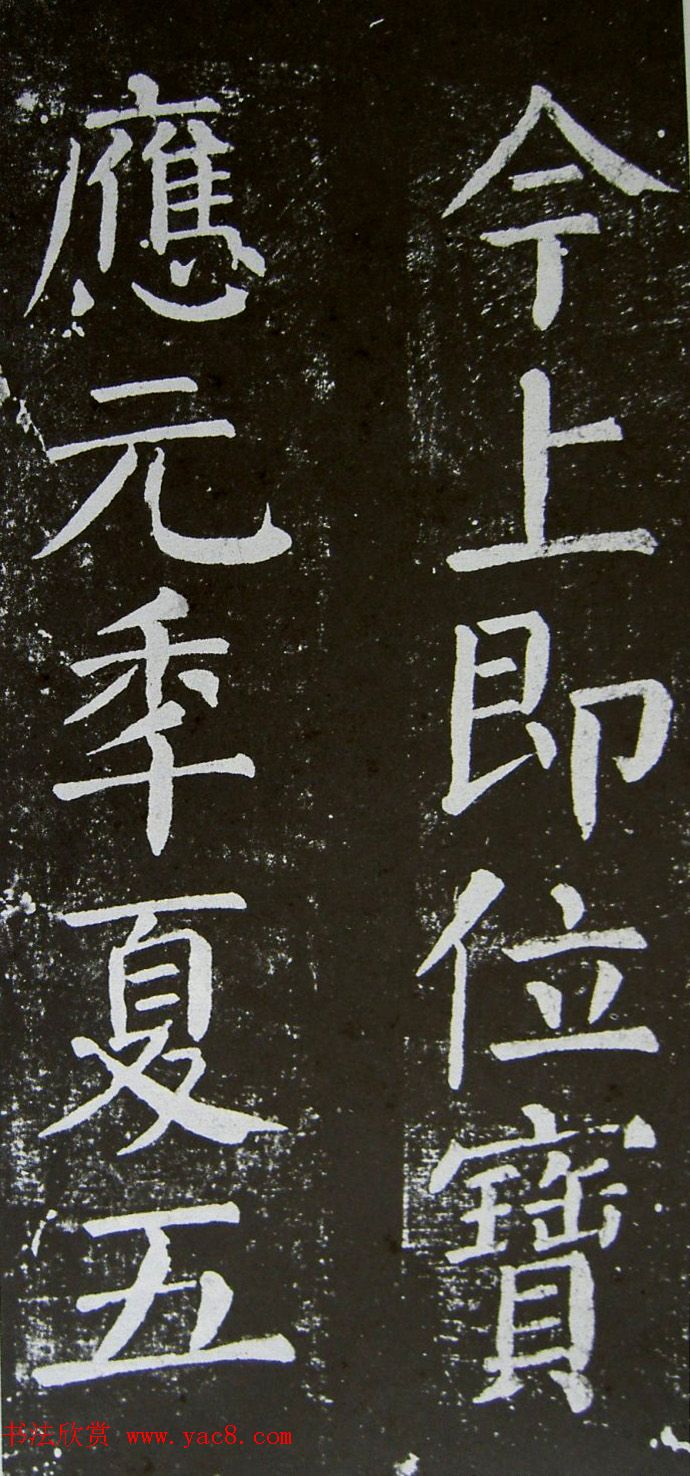 今上即位寶
應元年夏五
书法欣赏 www.yac8.com